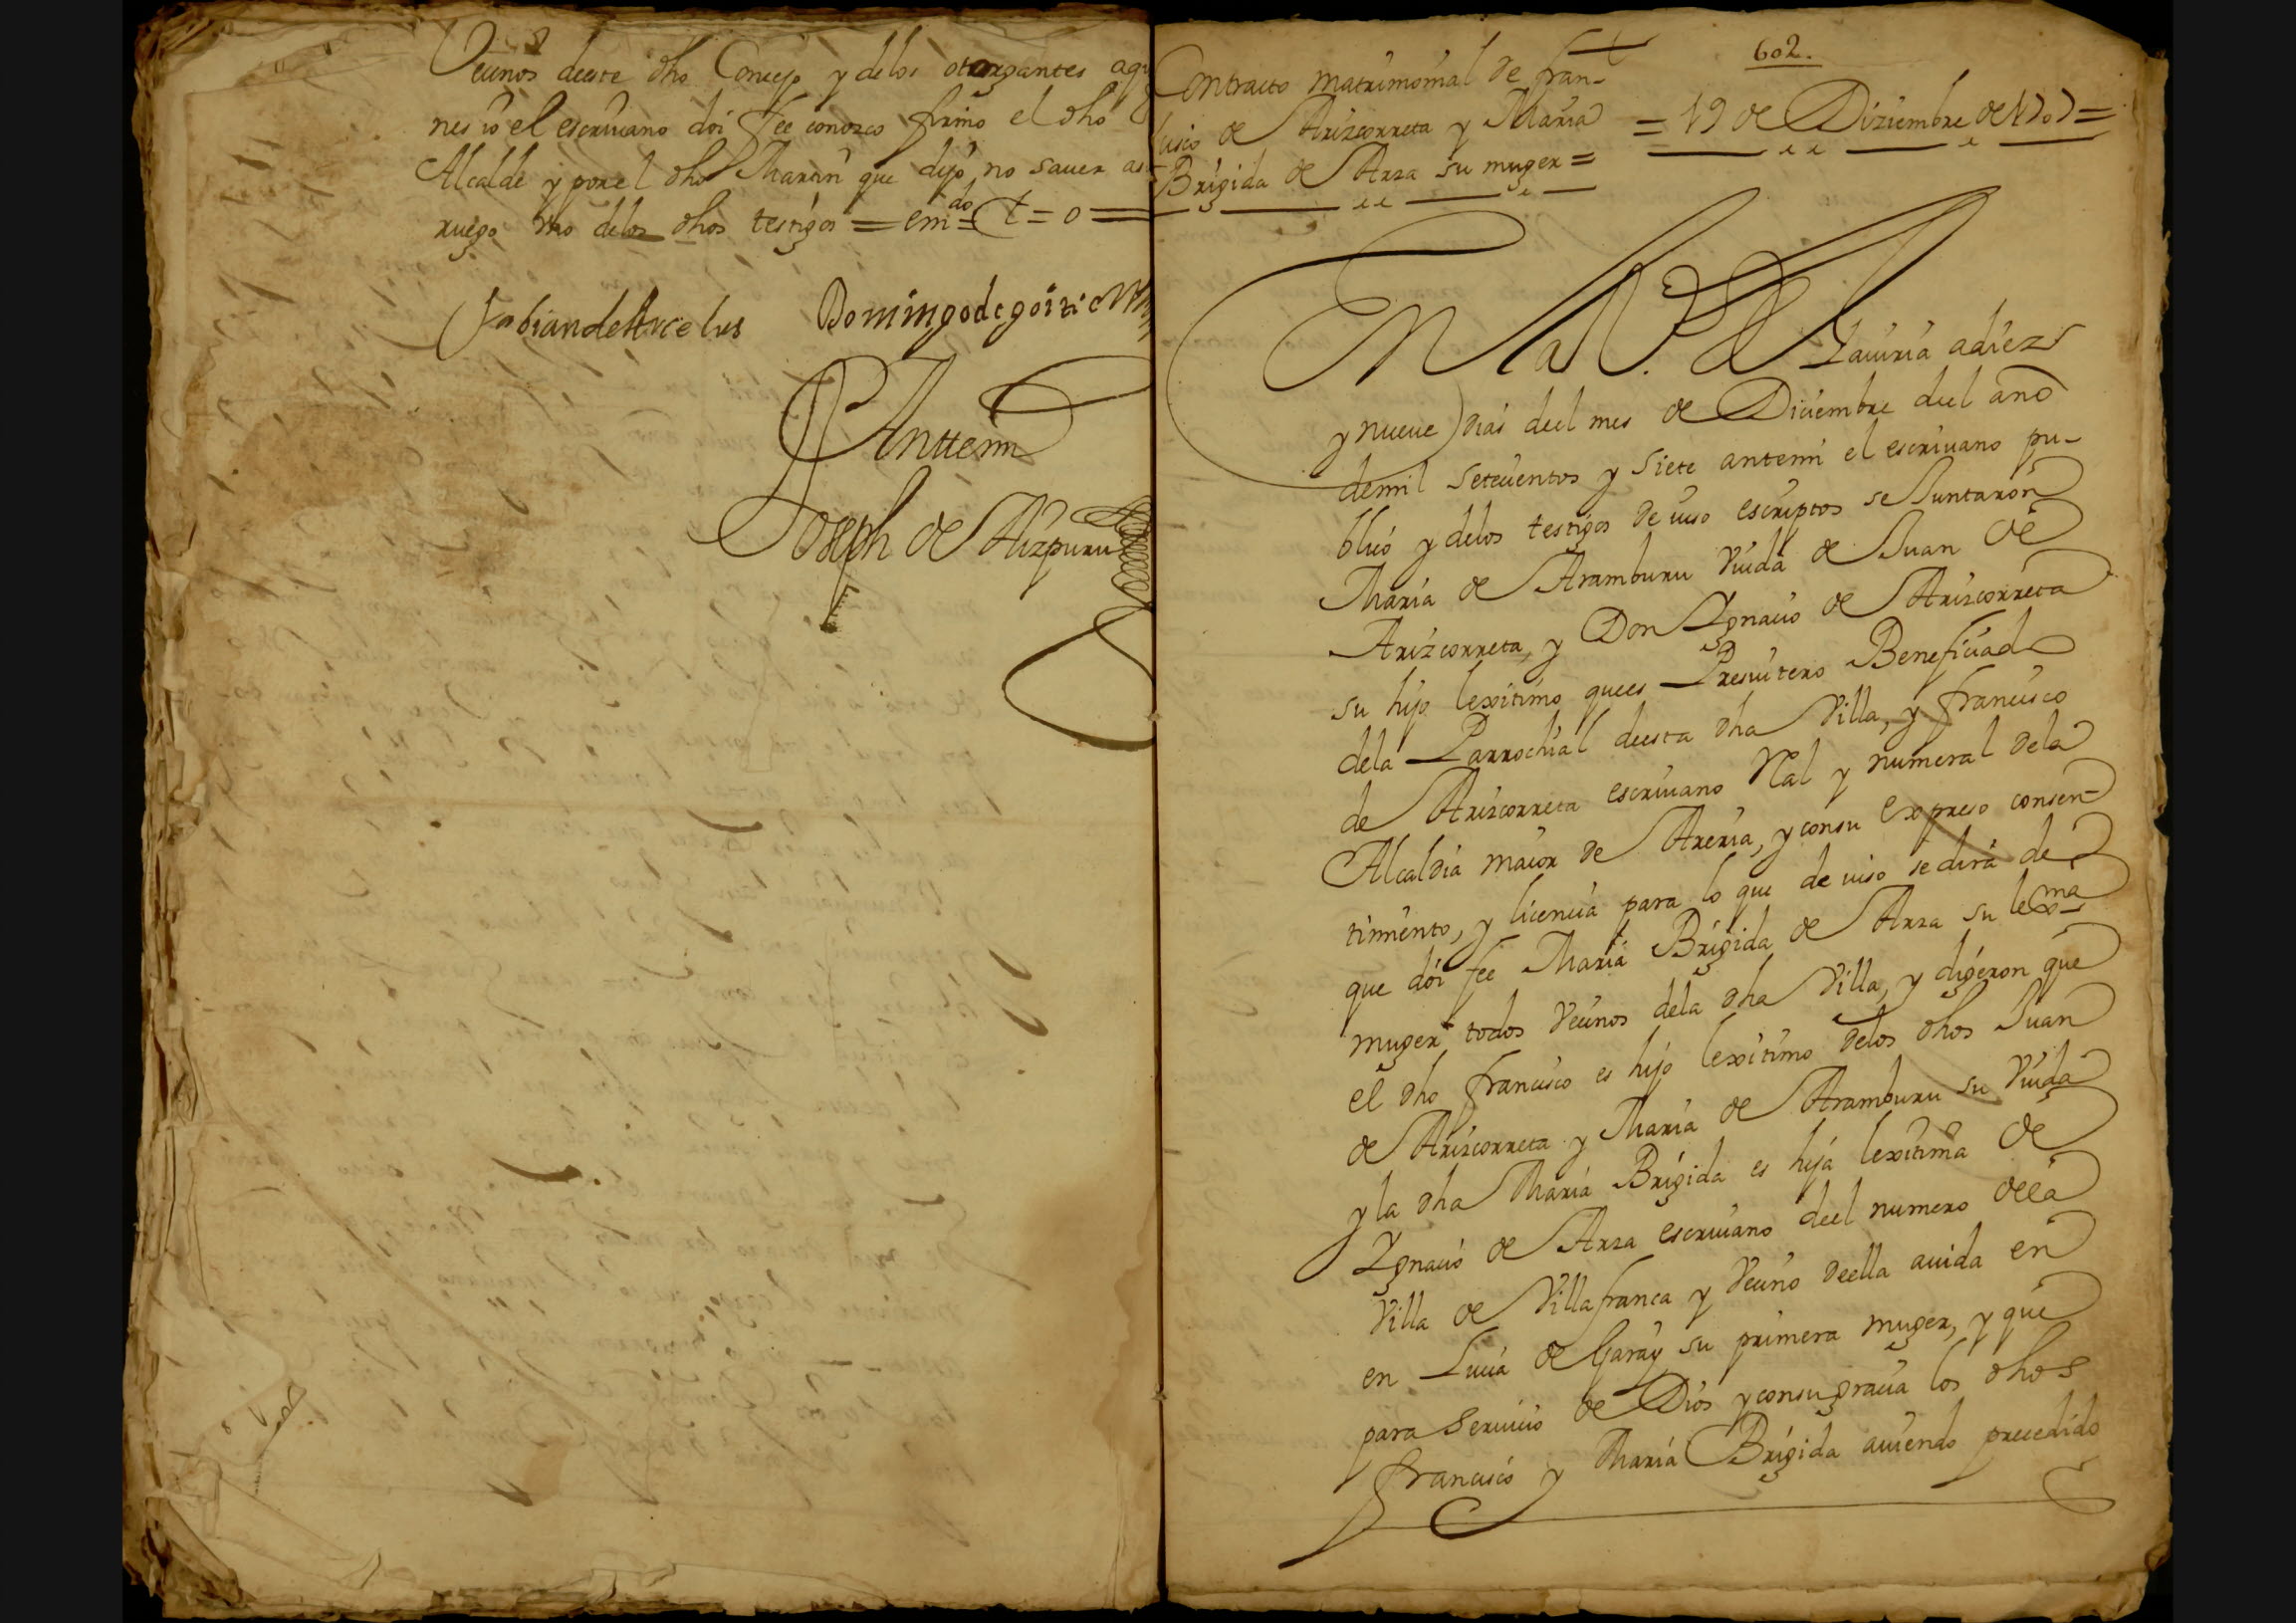 Vecinos deeste dho Concejo y delos otorgantes aqu
nes io el escriuano doi fee conozco firmo el dho
Alcalde y porel dho Martin que dijo no sauer a su
ruego vno delos dhos testigos = em.do = t = o =
Fabian de Arcelus Domingo de goiti
Anttemi
Joseph de Aizpuru
602.
Contracto matrimonial de fran-
cisco de Arizcorreta y Maria
Brigida de Arza su muger =
= 19 de Diziembre de 1707 =
En la V.a de Lauria a diez
y nueue dias deel mes de Diciembre deel año
demil setecientos y siete antemi el escriuano pu-
blico y delos testigos de iuso escriptos se Juntaron
Maria de Aramburu Viuda de Juan de
Arizcorreta, y Don Ygnacio de Arizcorreta
su hijo lexitimo quees Presuitero Beneficiado
dela Parrochial deesta dha Villa, y francisco
de Arizcorreta escriuano Rl y numeral dela
Alcaldia maior de Areria, y consu expreso consen-
timiento, y licencia para lo que de iuso se dira de
que doi fee Maria Brigida de Arza su lexma
muger todos Vecinos dela dha Villa, y digeron que
el dho francisco es hijo lexitimo delos dhos Juan
de Arizcorreta y Maria de Aramburu su Viuda
y la dha Maria Brigida es hija lexitima de
Ygnacio de Arza escriuano deel numero de la
Villa de Villafranca y Vecino deella auida en
en Lucia de Garay su primera muger, y que
para Seruicio de Dios y consu gracia los dhos
francisco y Maria Brigida auiendo precedido